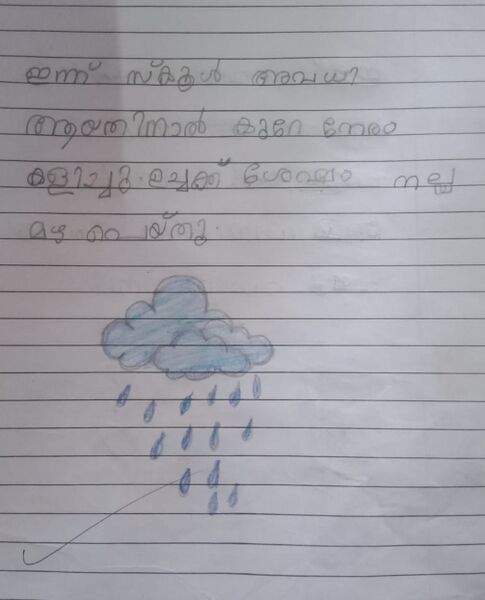 ഇന്ന് സ്കൂൾ അവധി
ആയതിനാൽ കുറേ നേരം
കളിച്ചു. ഉച്ചക്ക് ശേഷം നല്ല
മഴ പെയ്തു.